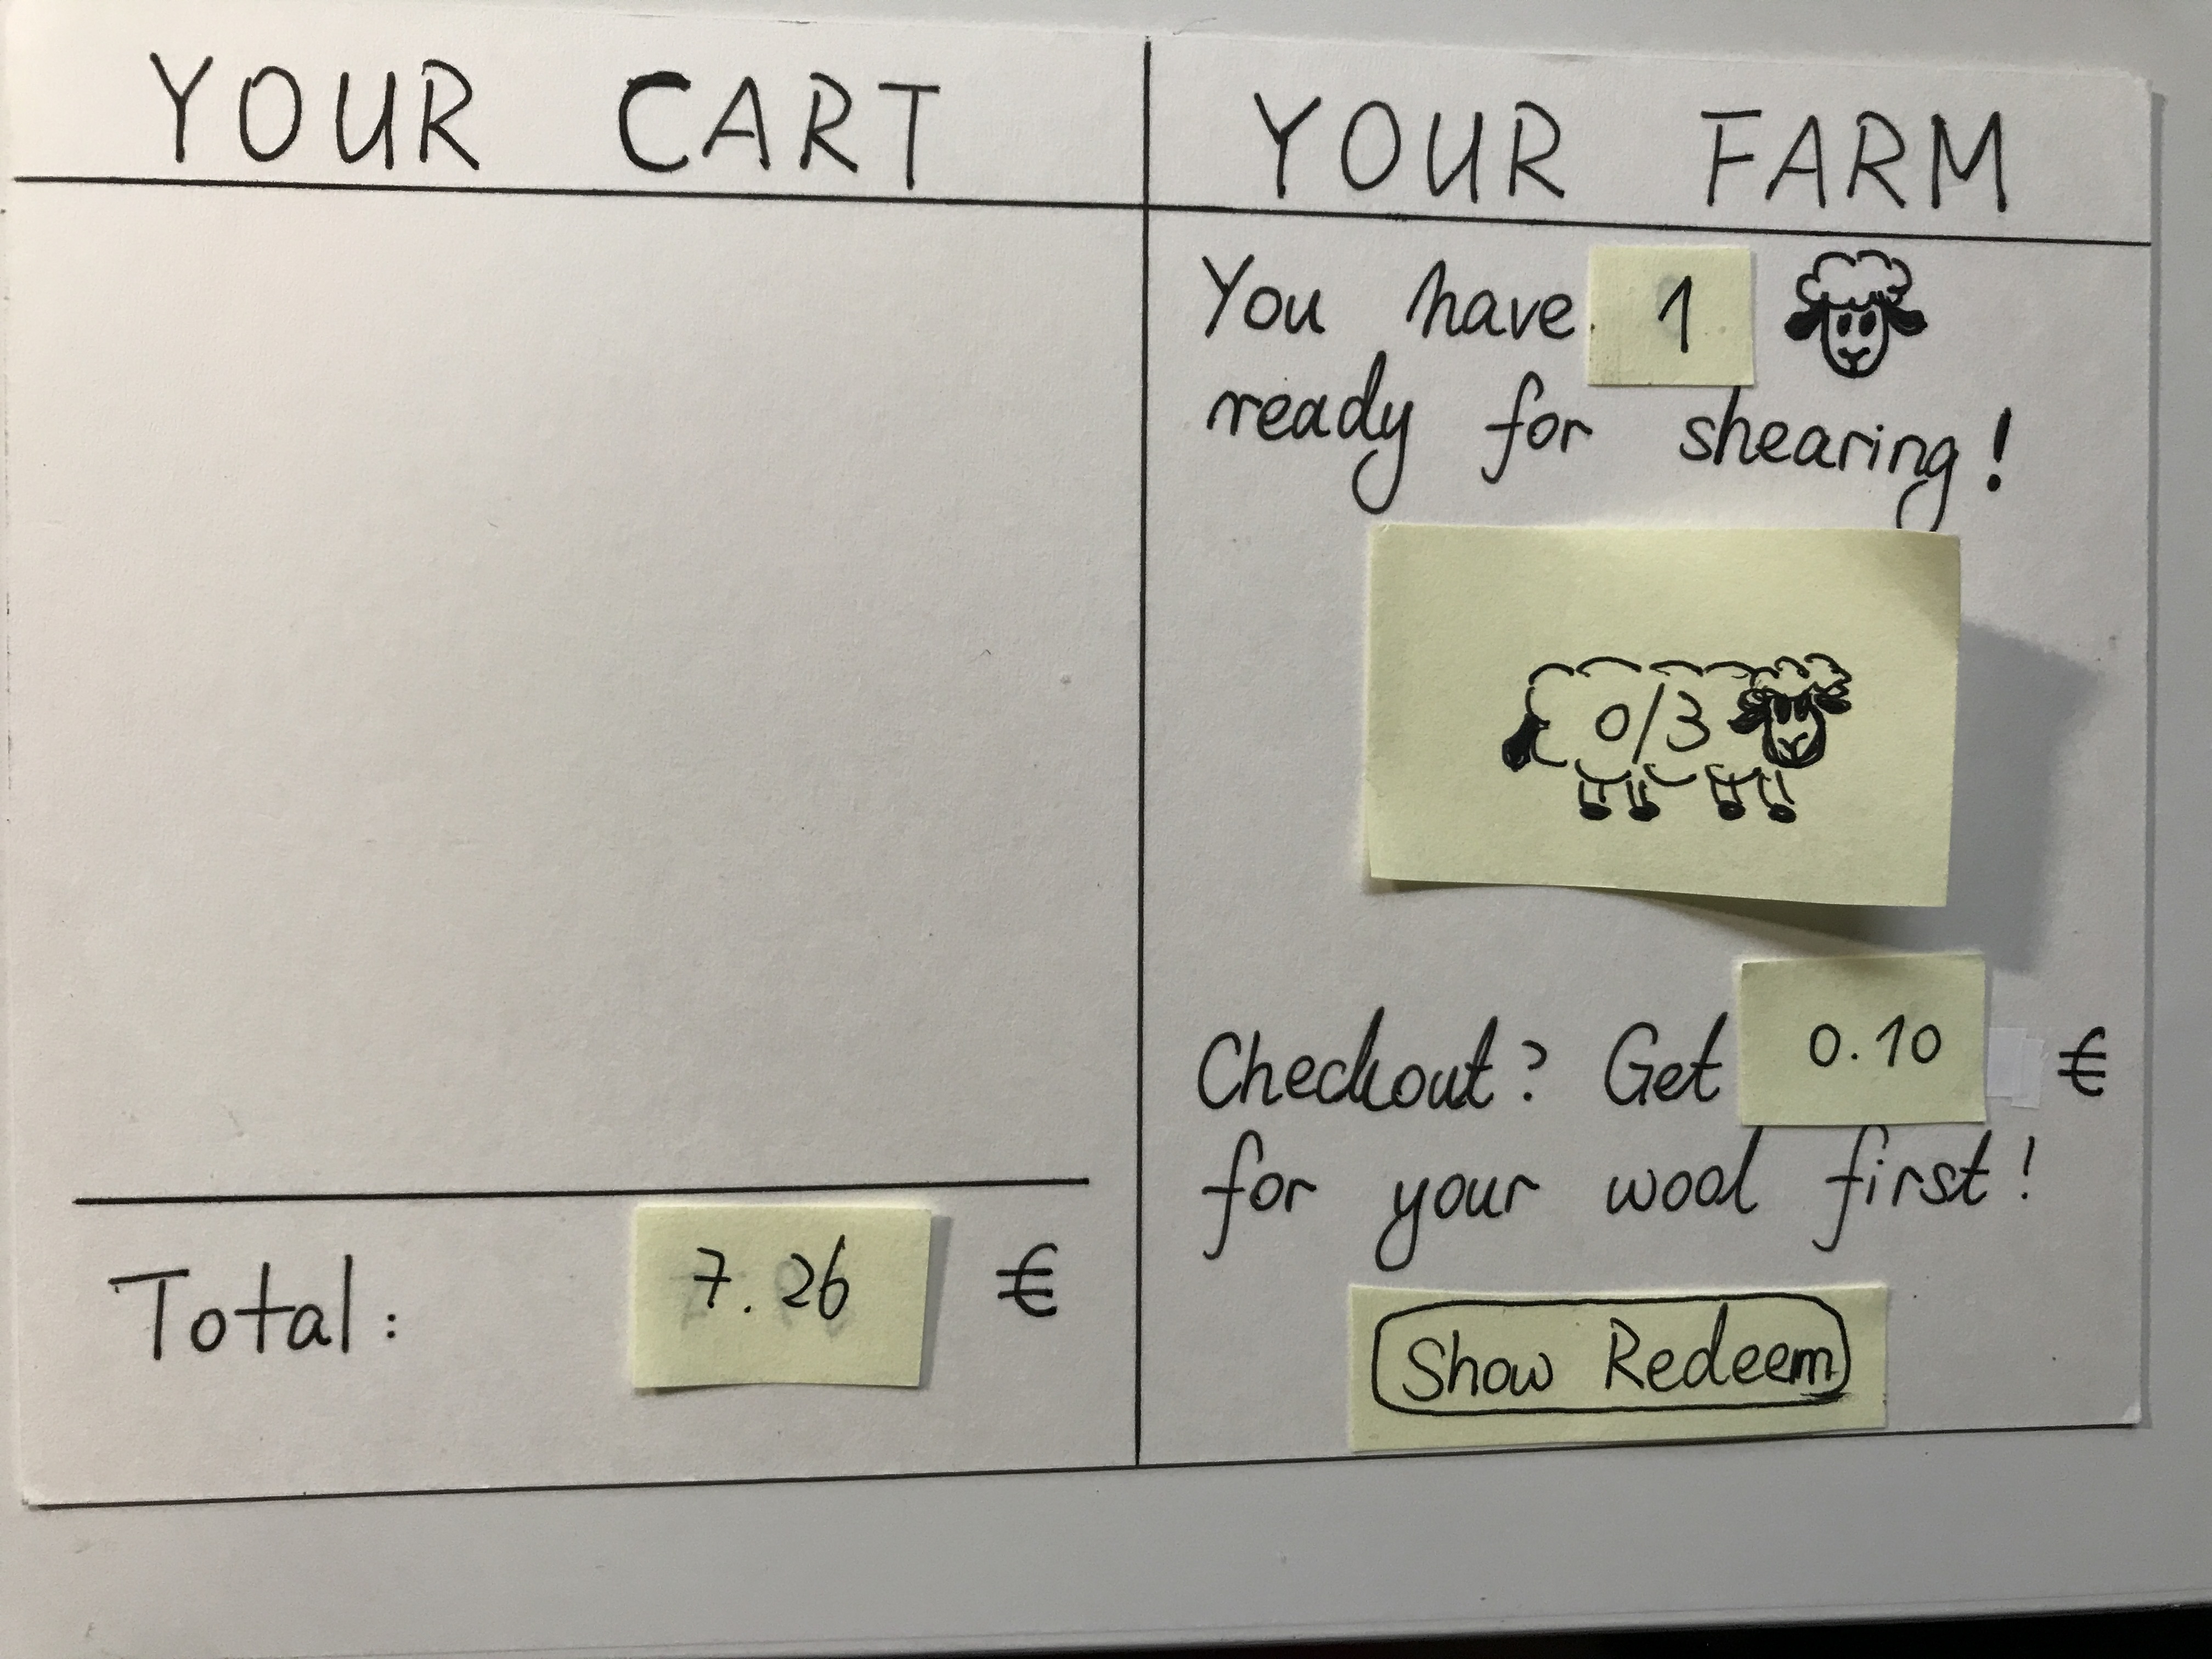 YOUR CART
Total: 7.26 €
YOUR FARM
You have 1
ready for shearing!
0/3
Checkout? Get 0.10 €
for your wool first!
Show Redeem